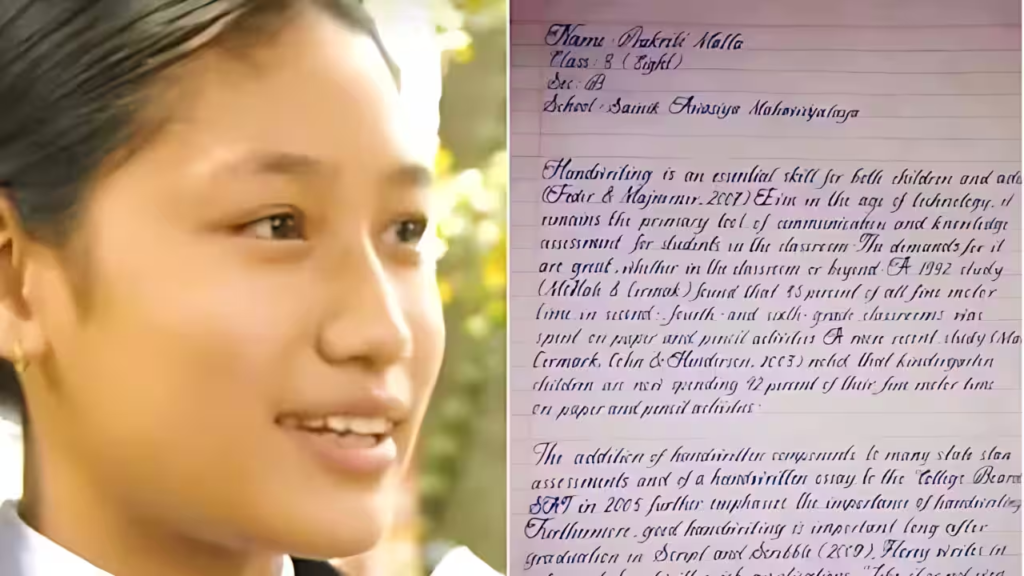 Name : Prakriti Malla
Class : 8 (Eight)
Sec : B
School : Sainik Awasiya Mahavidyalaya
Handwriting is an essential skill for both children and adu
(Feder & Majnemer, 2007) Even in the age of technology, it
remains the primary tool of communication and knowledge
assessment for students in the classroom. The demands for it
are great, whether in the classroom or beyond. A 1992 study
(McHale & Cermak) found that 85 percent of all fine motor
time in second-, fourth- and sixth-grade classrooms was
spent on paper and pencil activities A more recent study (Ma
Cermark, Cohn & Henderson, 2003) noted that kindergarten
children are now spending 42 percent of their fine motor time
on paper and pencil activities.
The addition of handwritten components to many state stan
assessments and of a handwritten essay to the "College Board
SAT in 2005 further emphaset the importance of handwriting
Furthermore, good handwriting is important long after
graduation in Script and Scribble (2009), Florey writes in